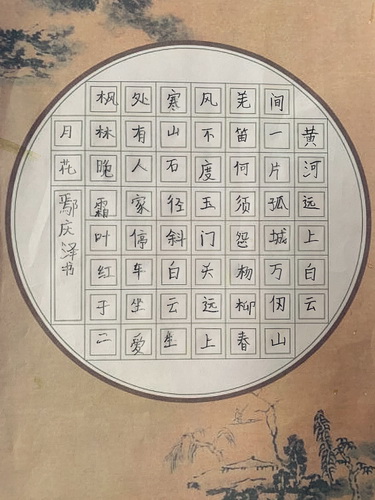 黄河远上白云
间一片孤城万仞山
羌笛何须怨杨柳春
风不度玉门关远上
寒山石径斜白云生
处有人家停车坐爱
枫林晚霜叶红于二
月花
鄢庆泽书